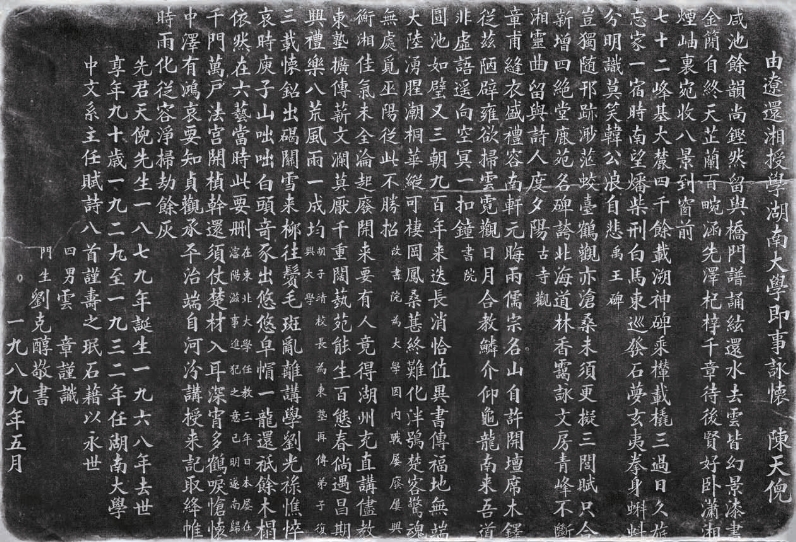 由遼還湘授學湖南大學即事詠懷 陳天倪
咸池餘韻尚鏗然留與橋門譜誦絃還水去雲皆幻景漆書
金簡自終天芷蘭百畹涵先澤杞梓千章待後賢好卧瀟湘
煙岫裏宛收八景到窗前
七十二峰基大麓四千餘載溯神碑乘樏載橇三過日久旅
忘家一宿時南望燔柴刑白馬東巡發石夢玄夷拳身蝌蚪
分明識莫笑韓公浪自悲 禹王碑
豈獨隨邢跡渺茫蛟臺鶴觀亦滄桑未須更擬三閭賦只合
新增四絕堂廉苑名碑誇北海道林香靄詠文房青峰不斷
湘靈曲留與詩人度夕陽 古寺觀
章甫縫衣盛禮容南軒元晦兩儒宗名山自許開壇席木鐸
從茲陋辟雍欲掃雲霓觀日月合教鱗介仰龜龍南來吾道
非虛語遙向空冥一扣鐘 書院
圓池如璧又三朝九百年來迭長消恰值異書傳福地無端
大陸湧腥潮桐華縱可棲岡鳳桑葚終難化泮鴞楚客驚魂
無處覓巫陽從此不勝招 改書院為大學因內戰屢廢屢興
衡湘佳氣未全淪起廢開來要有人竟得湖州充直講儘教
東塾擴傳薪文瀾莫厭千重闊藝苑能生百態春倘遇昌期
興禮樂八荒風雨一成均 胡子清校長為東塾再傳弟子復
興大學
三載懷鉛出碣關雪來柳往鬢毛斑亂離講學劉光祿憔悴
哀時庾子山咄咄白頭音豕出悠悠皁帽一龍還祗餘木榻
依然在六藝當時此要刪 在東北大學任教三年日本屢在
瀋陽滋事進犯之意已明遂南歸
千門萬戶法宮開楨幹還須仗楚材入耳深宵多鶴唳愴懷
中澤有鴻哀要知貞觀承平治端自河汾講授來記取絳帷
時雨化從容淨掃劫餘灰
先君天倪先生一八七九年誕生一九六八年去世
享年九十歲一九二九至一九三二年任湖南大學
中文系主任賦詩八首謹壽之珉石藉以永世
四男雲章謹識
門生劉克醇敬書
一九八九年五月